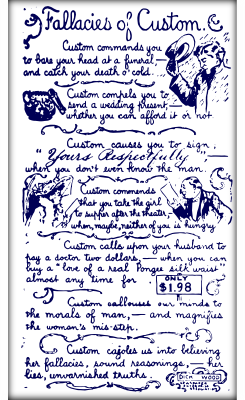 Fallacies of Custom.
Custom commands you
to bare your head at a funeral—
and catch your death o' cold.
Custom compels you to
send a wedding present,—
whether you can afford it or not
Custom causes you to sign,
"Yours Respectfully"—
when you don't even know the man.
Custom commands
that you take the girl
to supper after the theater,—
when, maybe, neither of you is hungry
Custom calls upon your husband to
pay a doctor two dollars,— when you can
buy a "love of a real Pongee silk waist"
almost any time for
ONLY
$1.98
Custom callouses our minds to
the morals of man,— and magnifies
the woman's mis-step.
Custom cajoles us into believing
her fallacies, sound reasonings,— her
lies, unvarnished truths.
DICK WOOD